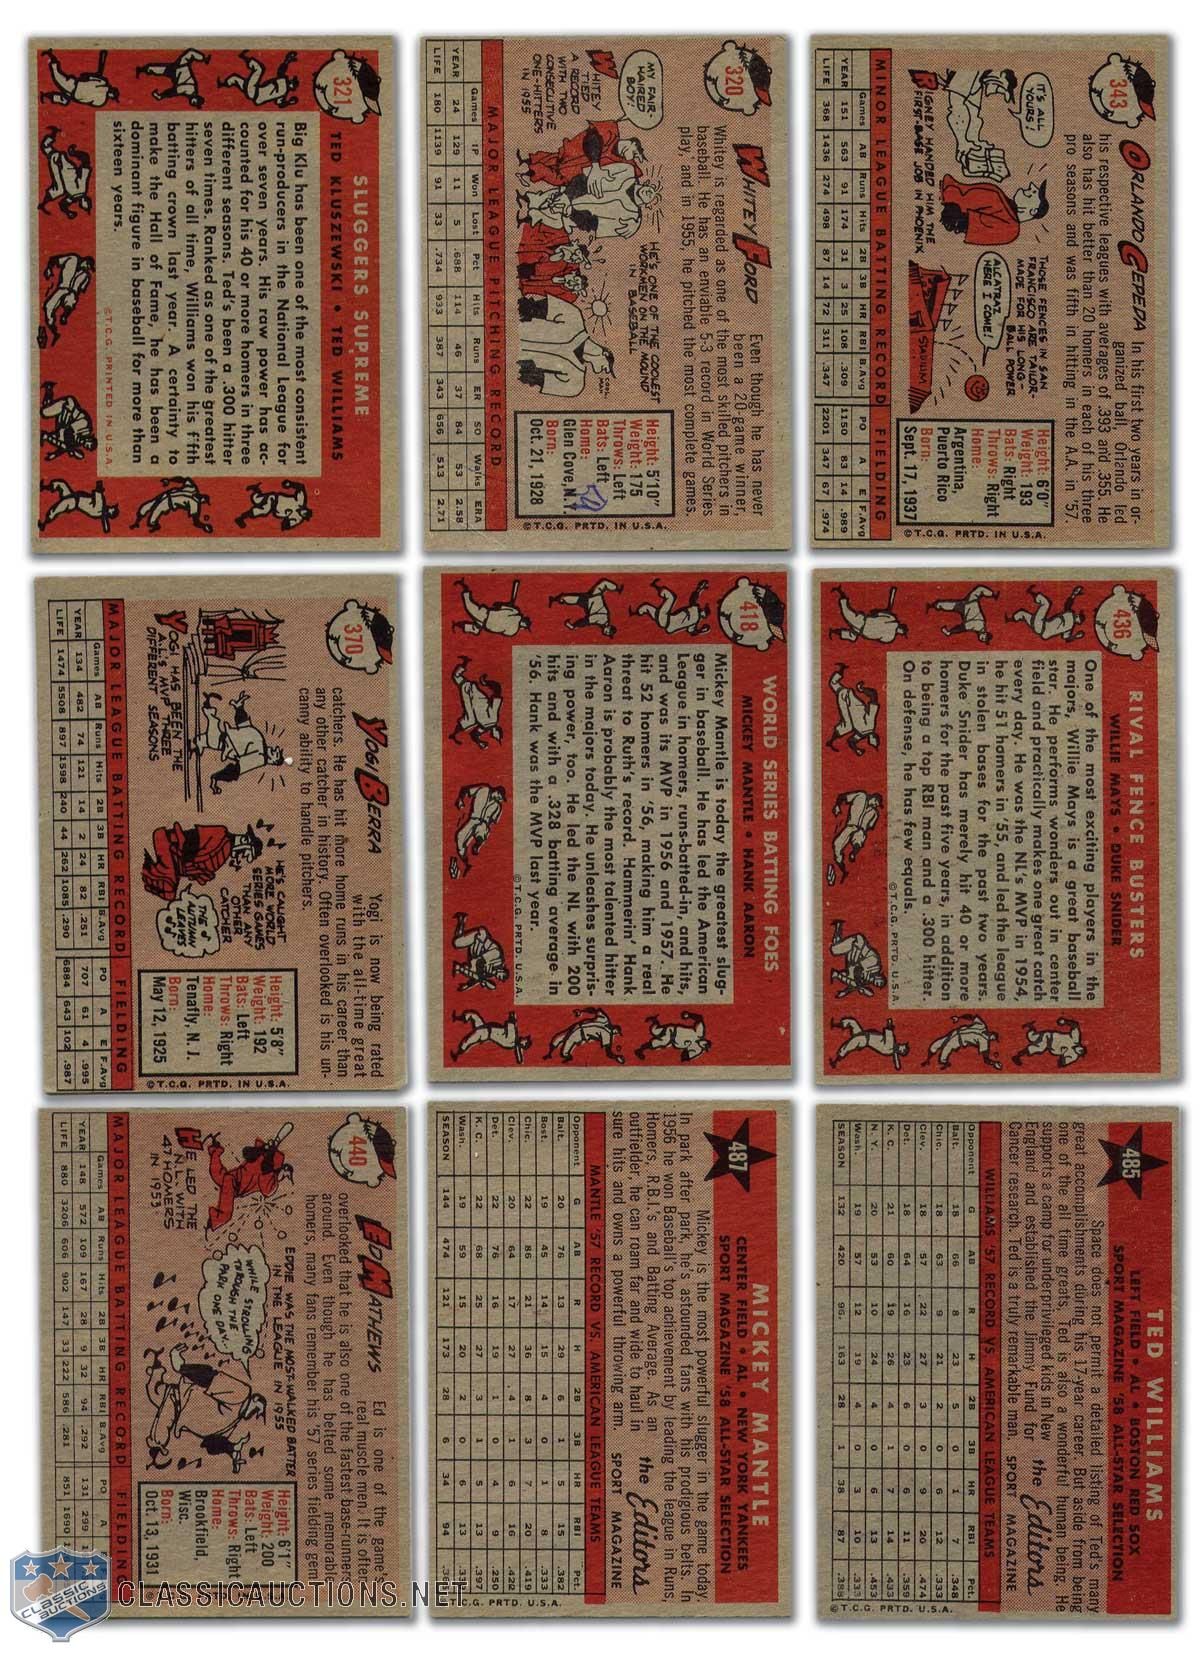 321
SLUGGERS SUPREME
TED KLUSZEWSKI • TED WILLIAMS
Big Klu has been one of the most consistent
run-producers in the National League for
over seven years. His raw power has ac-
counted for 40 or more homers in three
different seasons. Ted's been a .300 hitter
seven times. Ranked as one of the greatest
hitters of all time, Williams won his fifth
batting crown last year. A certainty to
make the Hall of Fame, he has been a
dominant figure in baseball for more than
sixteen years.
©T.C.G. PRINTED IN U.S.A.
320
WHITEY FORD
Even though he has never
been a 20-game winner,
Whitey is regarded as one of the most skilled pitchers in
baseball. He has an enviable 5-3 record in World Series
play, and in 1955, he pitched the most complete games.
MY FAIR-
HAIRED
BOY!
WHITEY
TIED
A RECORD
WITH TWO
CONSECUTIVE
ONE-HITTERS
IN 1955
HE'S ONE OF THE COOLEST
WORKMEN ON THE MOUND
IN BASEBALL
Height: 5'10"
Weight: 175
Throws: Left
Bats: Left
Home:
Glen Cove, N.Y.
Born:
Oct. 21, 1928
MAJOR LEAGUE PITCHING RECORD
Games IP Won Lost Pct Hits Runs ER SO Walks ERA
YEAR 24 129 11 5 .688 114 46 37 84 53 2.58
LIFE 180 1139 91 33 .734 933 387 343 656 513 2.71
©T.C.G. PRTD. IN U.S.A.
343
ORLANDO CEPEDA
In his first two years in or-
ganized ball, Orlando led
his respective leagues with averages of .393 and .355. He
also has hit better than 20 homers in each of his three
pro seasons and was fifth in hitting in the A.A. in '57.
IT'S ALL
YOURS!
RIGNEY HANDED HIM THE
FIRST-BASE JOB IN PHOENIX
THOSE FENCES IN SAN
FRANCISCO ARE TAILOR-
MADE FOR HIS LONG-
BALL POWER
ALCATRAZ
HERE I
COME!
STADIUM
Height: 6'0"
Weight: 193
Bats: Right
Throws: Right
Home:
Argentina,
Puerto Rico
Born:
Sept. 17, 1937
MINOR LEAGUE BATTING RECORD FIELDING
Games AB Runs Hits 2B 3B HR RBI B.Avg PO A E F.Avg
YEAR 151 563 91 174 31 3 25 108 .309 1150 83 14 .989
LIFE 368 1436 274 498 87 14 72 311 .347 2201 347 67 .974
©T.C.G. PRTD. IN U.S.A.
370
YOGI BERRA
Yogi is now being rated
with the all-time great
catchers. He has hit more home runs in his career than
any other catcher in history. Often overlooked is his un-
canny ability to handle pitchers.
YOGI HAS BEEN THE
A.L.'S MVP THREE
DIFFERENT SEASONS
HE'S CAUGHT
MORE WORLD
SERIES GAMES
THAN ANY
OTHER
CATCHER
THE
AUTUMN
LEAVES
Height: 5'8"
Weight: 192
Bats: Left
Throws: Right
Home:
Tenafly, N. J.
Born:
May 12, 1925
MAJOR LEAGUE BATTING RECORD FIELDING
Games AB Runs Hits 2B 3B HR RBI B.Avg PO A E F.Avg
YEAR 134 482 74 121 14 2 24 82 .251 707 61 4 .995
LIFE 1474 5508 897 1598 240 44 262 1085 .290 6884 643 102 .987
©T.C.G. PRTD. IN U.S.A.
418
WORLD SERIES BATTING FOES
MICKEY MANTLE • HANK AARON
Mickey Mantle is today the greatest slug-
ger in baseball. He has led the American
League in homers, runs-batted-in, and hits,
and was its MVP in 1956 and 1957. He
hit 52 homers in '56, making him a real
threat to Ruth's record. Hammerin' Hank
Aaron is probably the most talented hitter
in the majors today. He unleashes surpris-
ing power, too. He led the NL with 200
hits and with a .328 batting average in
'56. Hank was the MVP last year.
©T.C.G. PRTD. U.S.A.
436
RIVAL FENCE BUSTERS
WILLIE MAYS • DUKE SNIDER
One of the most exciting players in the
majors, Willie Mays is a great baseball
star. He performs wonders out in center
field and practically makes one great catch
every day. He was the NL's MVP in 1954,
he hit 51 homers in '55, and led the league
in stolen bases for the past two years.
Duke Snider has merely hit 40 or more
homers for the past five years, in addition
to being a top RBI man and a .300 hitter.
On defense, he has few equals.
©T.C.G. PRTD. U.S.A.
440
ED MATHEWS
Ed is one of the game's
real muscle men. It is often
overlooked that he is also one of the fastest base-runners
around. Even though he has belted some memorable
homers, many fans remember his '57 series fielding gem.
HE LED THE
N.L. WITH
47 HOMERS
IN 1953
EDDIE WAS THE MOST-WALKED BATTER
IN THE LEAGUE IN 1955
WHILE STROLLING
THROUGH THE
PARK ONE DAY.
Height: 6'1"
Weight: 200
Bats: Left
Throws: Right
Home:
Brookfield,
Wisc.
Born:
Oct. 13, 1931
MAJOR LEAGUE BATTING RECORD FIELDING
Games AB Runs Hits 2B 3B HR RBI B.Avg PO A
YEAR 148 572 109 167 28 9 32 94 .292 131 299
LIFE 880 3206 606 902 147 33 222 586 .281 851 1690
487
MICKEY MANTLE
CENTER FIELD • AL • NEW YORK YANKEES
SPORT MAGAZINE '58 ALL-STAR SELECTION
Mickey is the most powerful slugger in the game today.
In park after park, he's astounded fans with his prodigious belts. In
1956 he won Baseball's top achievement by leading the league in Runs,
Homers, R.B.I.'s and Batting Average. As an
outfielder, he can roam far and wide to haul in
sure hits and owns a powerful throwing arm.
the Editors
SPORT MAGAZINE
MANTLE '57 RECORD VS. AMERICAN LEAGUE TEAMS
Opponent G AB R H 2B 3B HR RBI Pct.
Balt.
Bost.
Chic.
Clev.
Det.
K. C.
Wash.
SEASON 144 474 121 173 28 6 34 94
©T.C.G. PRTD. U.S.A.
485
TED WILLIAMS
LEFT FIELD • AL • BOSTON RED SOX
SPORT MAGAZINE '58 ALL-STAR SELECTION
Space does not permit a detailed listing of Ted's many
great accomplishments during his 17-year career. But aside from being
one of the all time greats, Ted is also a wonderful human being. He
supports a camp for under-privileged kids in New
England and established the Jimmy Fund for
Cancer research. Ted is a truly remarkable man.
the Editors
SPORT MAGAZINE
WILLIAMS '57 RECORD VS. AMERICAN LEAGUE TEAMS
Opponent G AB R H 2B 3B HR RBI Pct.
Balt.
Chic.
Clev.
Det.
K. C.
N. Y.
Wash.
SEASON 132 420 96 163 28 1 38 87 .388
©T.C.G. PRTD. U.S.A.
CLASSIC
AUCTIONS
CLASSICAUCTIONS.NET